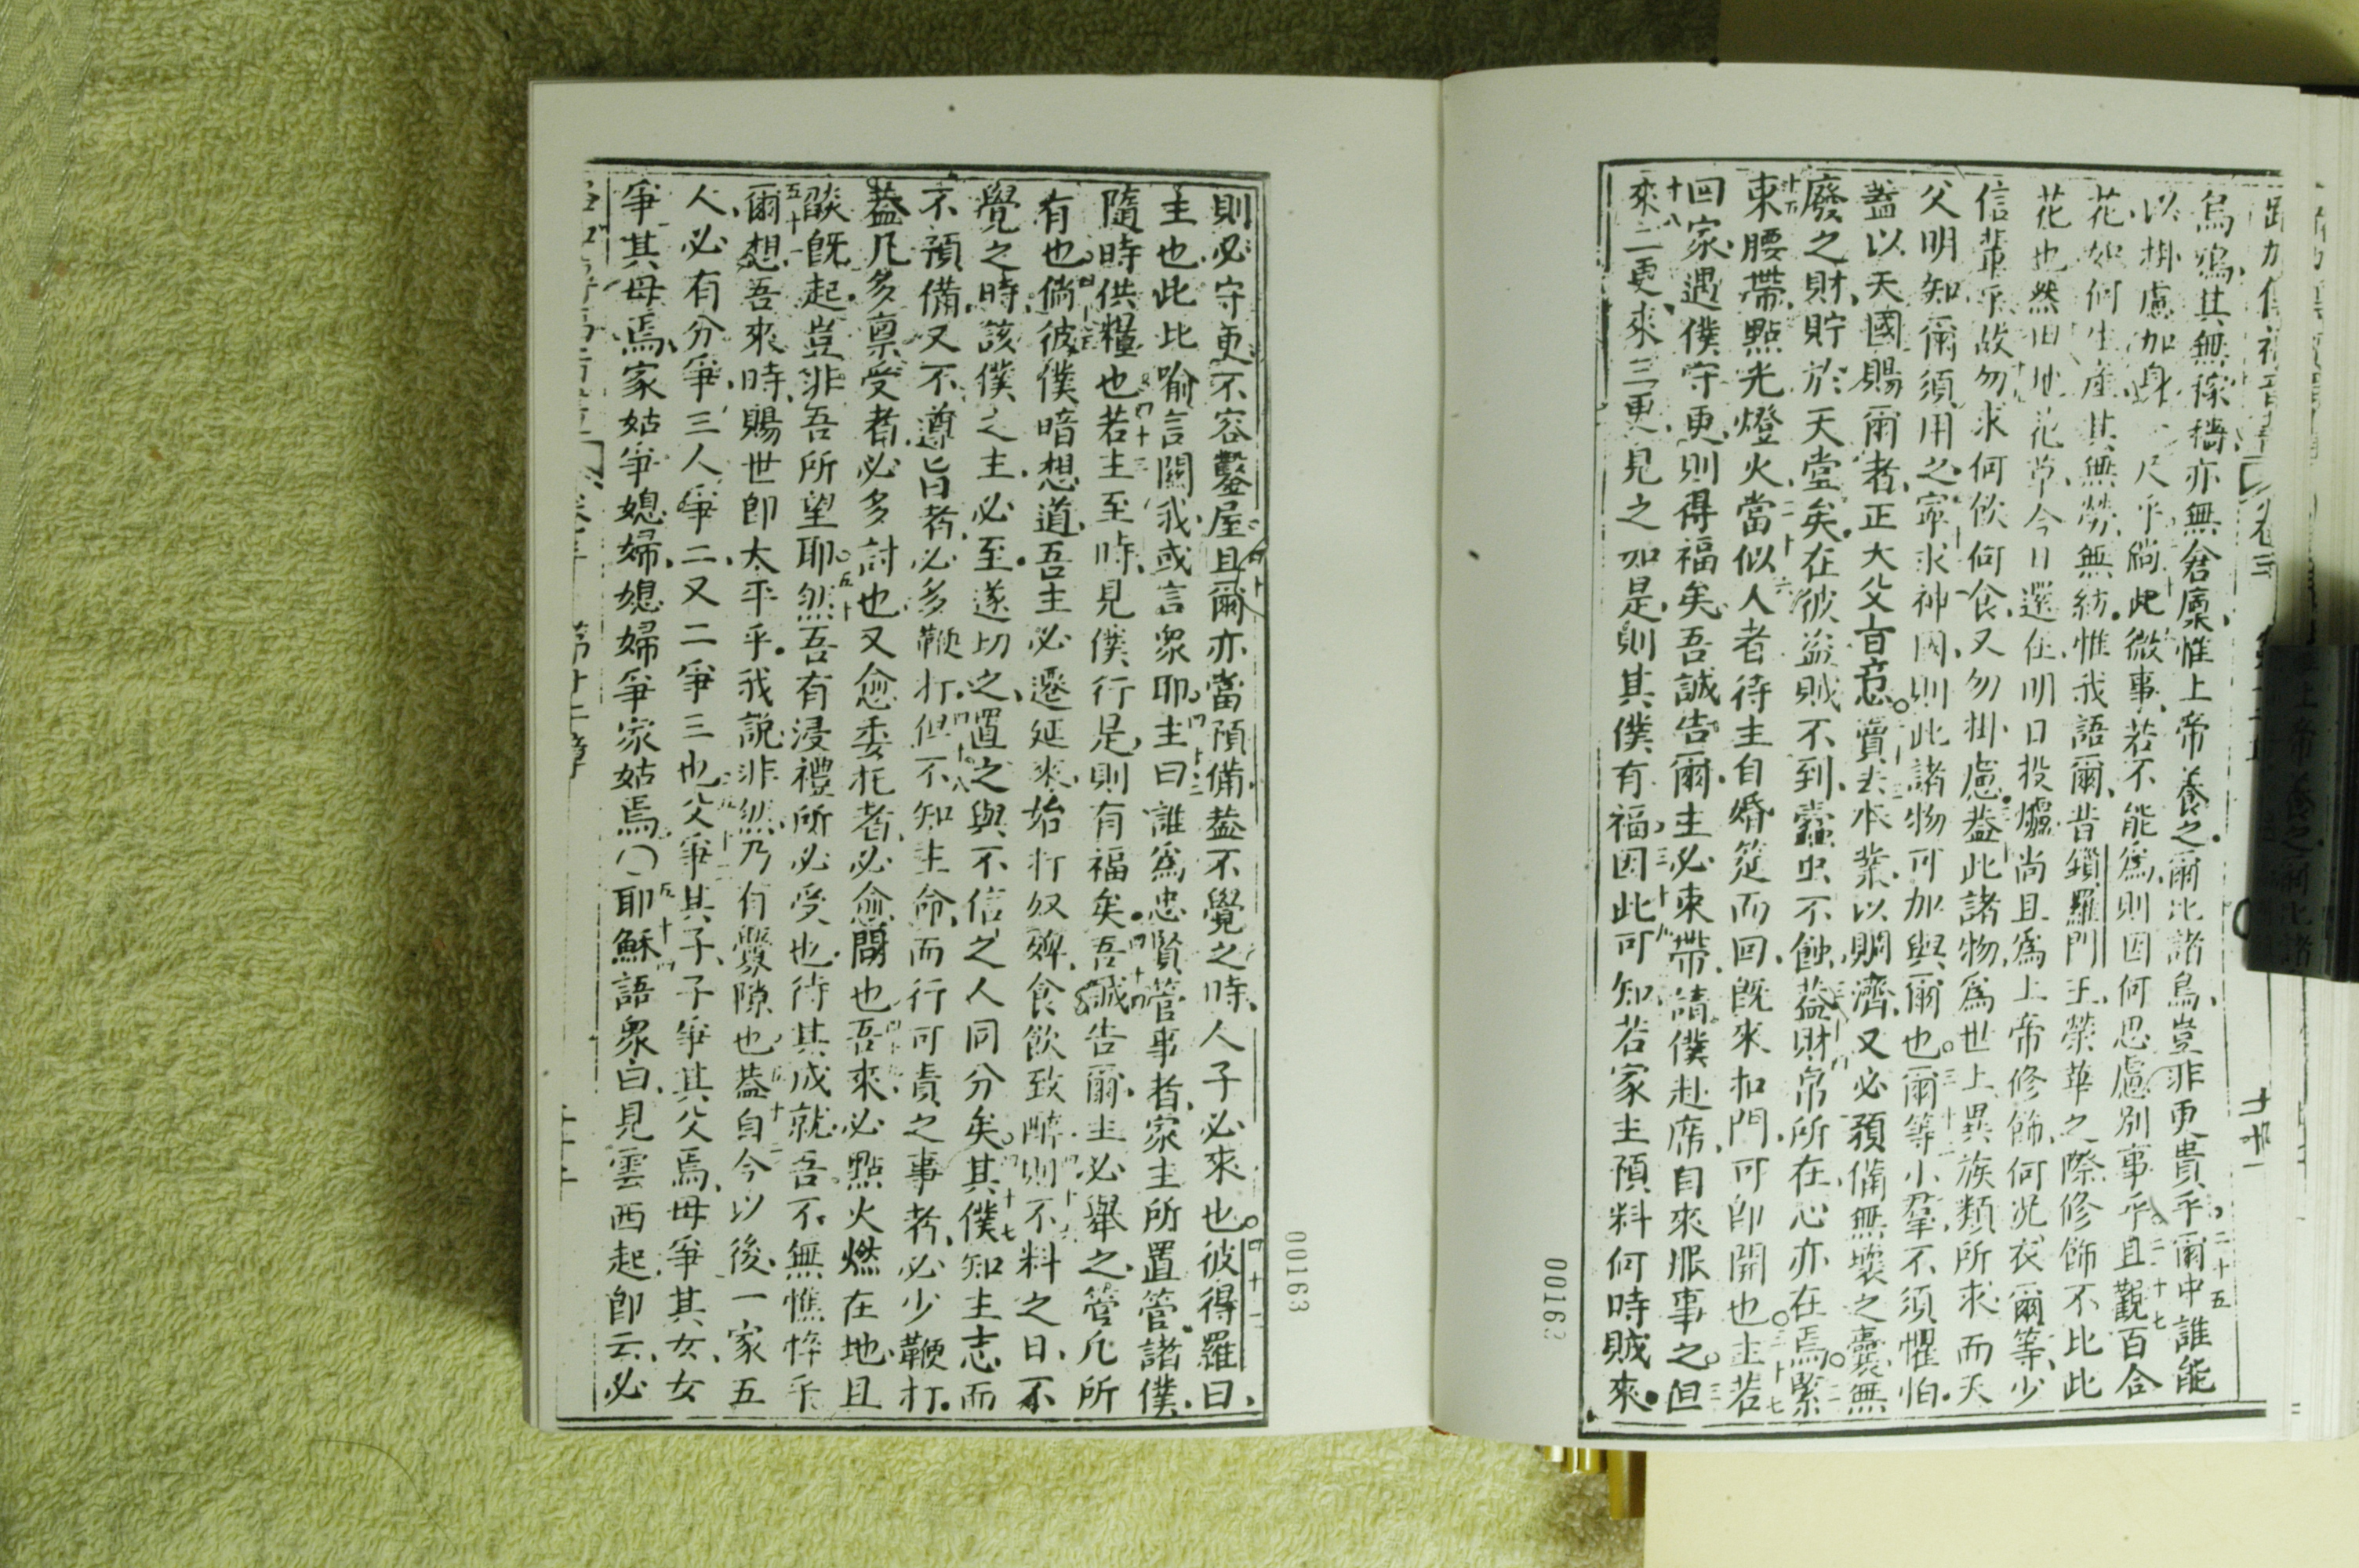 路加傳福音書 卷三
烏鴉其無稼穡亦無倉廩惟上帝養之爾比諸鳥豈非更貴乎二十五爾中誰能
以掛慮加身一尺乎倘此微事若不能為則因何思慮別事乎二十七且觀百合
花如何生產其無勞無紡惟我語爾昔鎖羅門王榮華之際修飾不比此
花也然田地花草今日還在明日投爐尚且為上帝修飾何况衣爾等少
信輩乎故勿求何飲何食又勿掛慮蓋此諸物為世上異族類所求而天
父明知爾須用之寧求神國則此諸物可加與爾也三十二爾等小羣不須懼怕
蓋以天國賜爾者正大父旨意賣去本業以賙濟又必預備無壞之囊無
廢之財貯於天堂矣在彼盜賊不到蠹虫不蝕蓋財帛所在心亦在焉緊
束腰帶點光燈火當似人者三十六待主自婚筵而回既來扣門可即開也三十七主若
回家遇僕守更則得福矣吾誠告爾主必束帶請僕赴席自來服事之但
來二更來三更見之如是則其僕有福三十九因此可知若家主預料何時賊來
00163
00163
則必守更不容鑿屋四十且爾亦當預備蓋不覺之時人子必來也四十一彼得羅曰
主也此比喻言關我或言衆耶四十二主曰誰為忠賢管事者家主所置管諸僕
隨時供糧也四十三若主至時見僕行是則有福矣四十四吾誠告爾主必舉之管凡所
有也四十五倘彼僕暗想道吾主必遷延來始打奴婢食飲致醉四十六則不料之日不
覺之時該僕之主必至遂切之置之與不信之人同分矣四十七其僕知主志而
不預備又不遵旨者必多鞭打四十八但不知主命而行可責之事者必少鞭打
蓋凡多禀受者必多討也又愈委托者必愈問也四十九吾來必點火燃在地且
燄既起豈非吾所望耶五十然吾有浸禮所必受也待其成就吾不無憔悴乎
五十一爾想吾來時賜世即太平乎我說非然乃有釁隙也五十二蓋自今以後一家五
人必有分爭三人爭二又二爭三也五十三父爭其子子爭其父焉母爭其女女
爭其母焉家姑爭媳婦媳婦爭家姑焉〇五十四耶穌語衆曰見雲西起即云必
第十二章